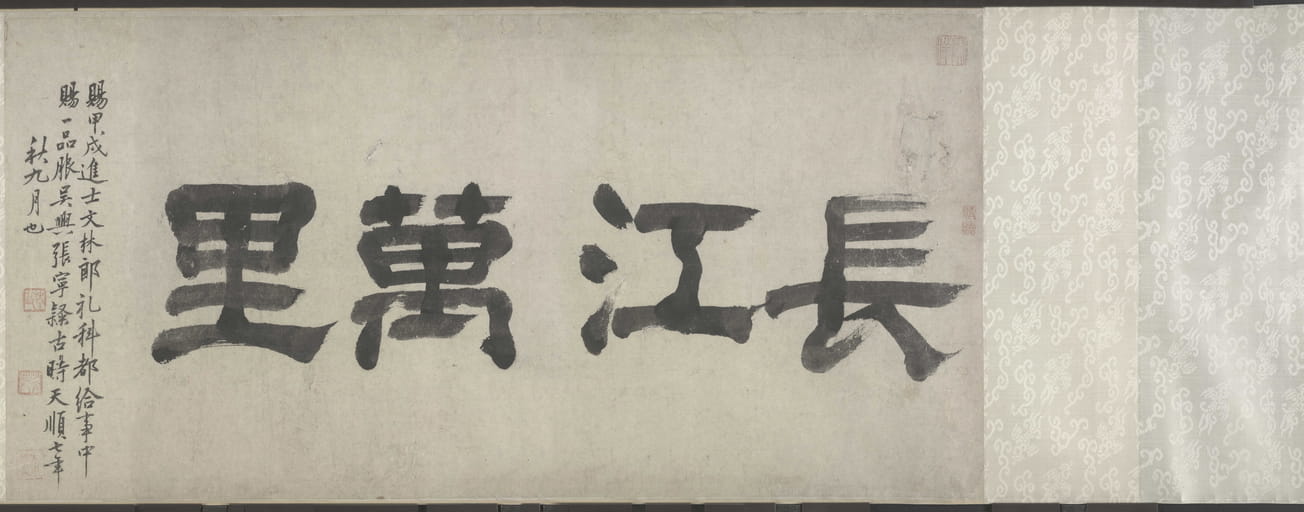 長江萬里
賜甲戌進士文林郎礼科都給事中
賜一品服吴興張寧隸古時天順七年
秋九月也